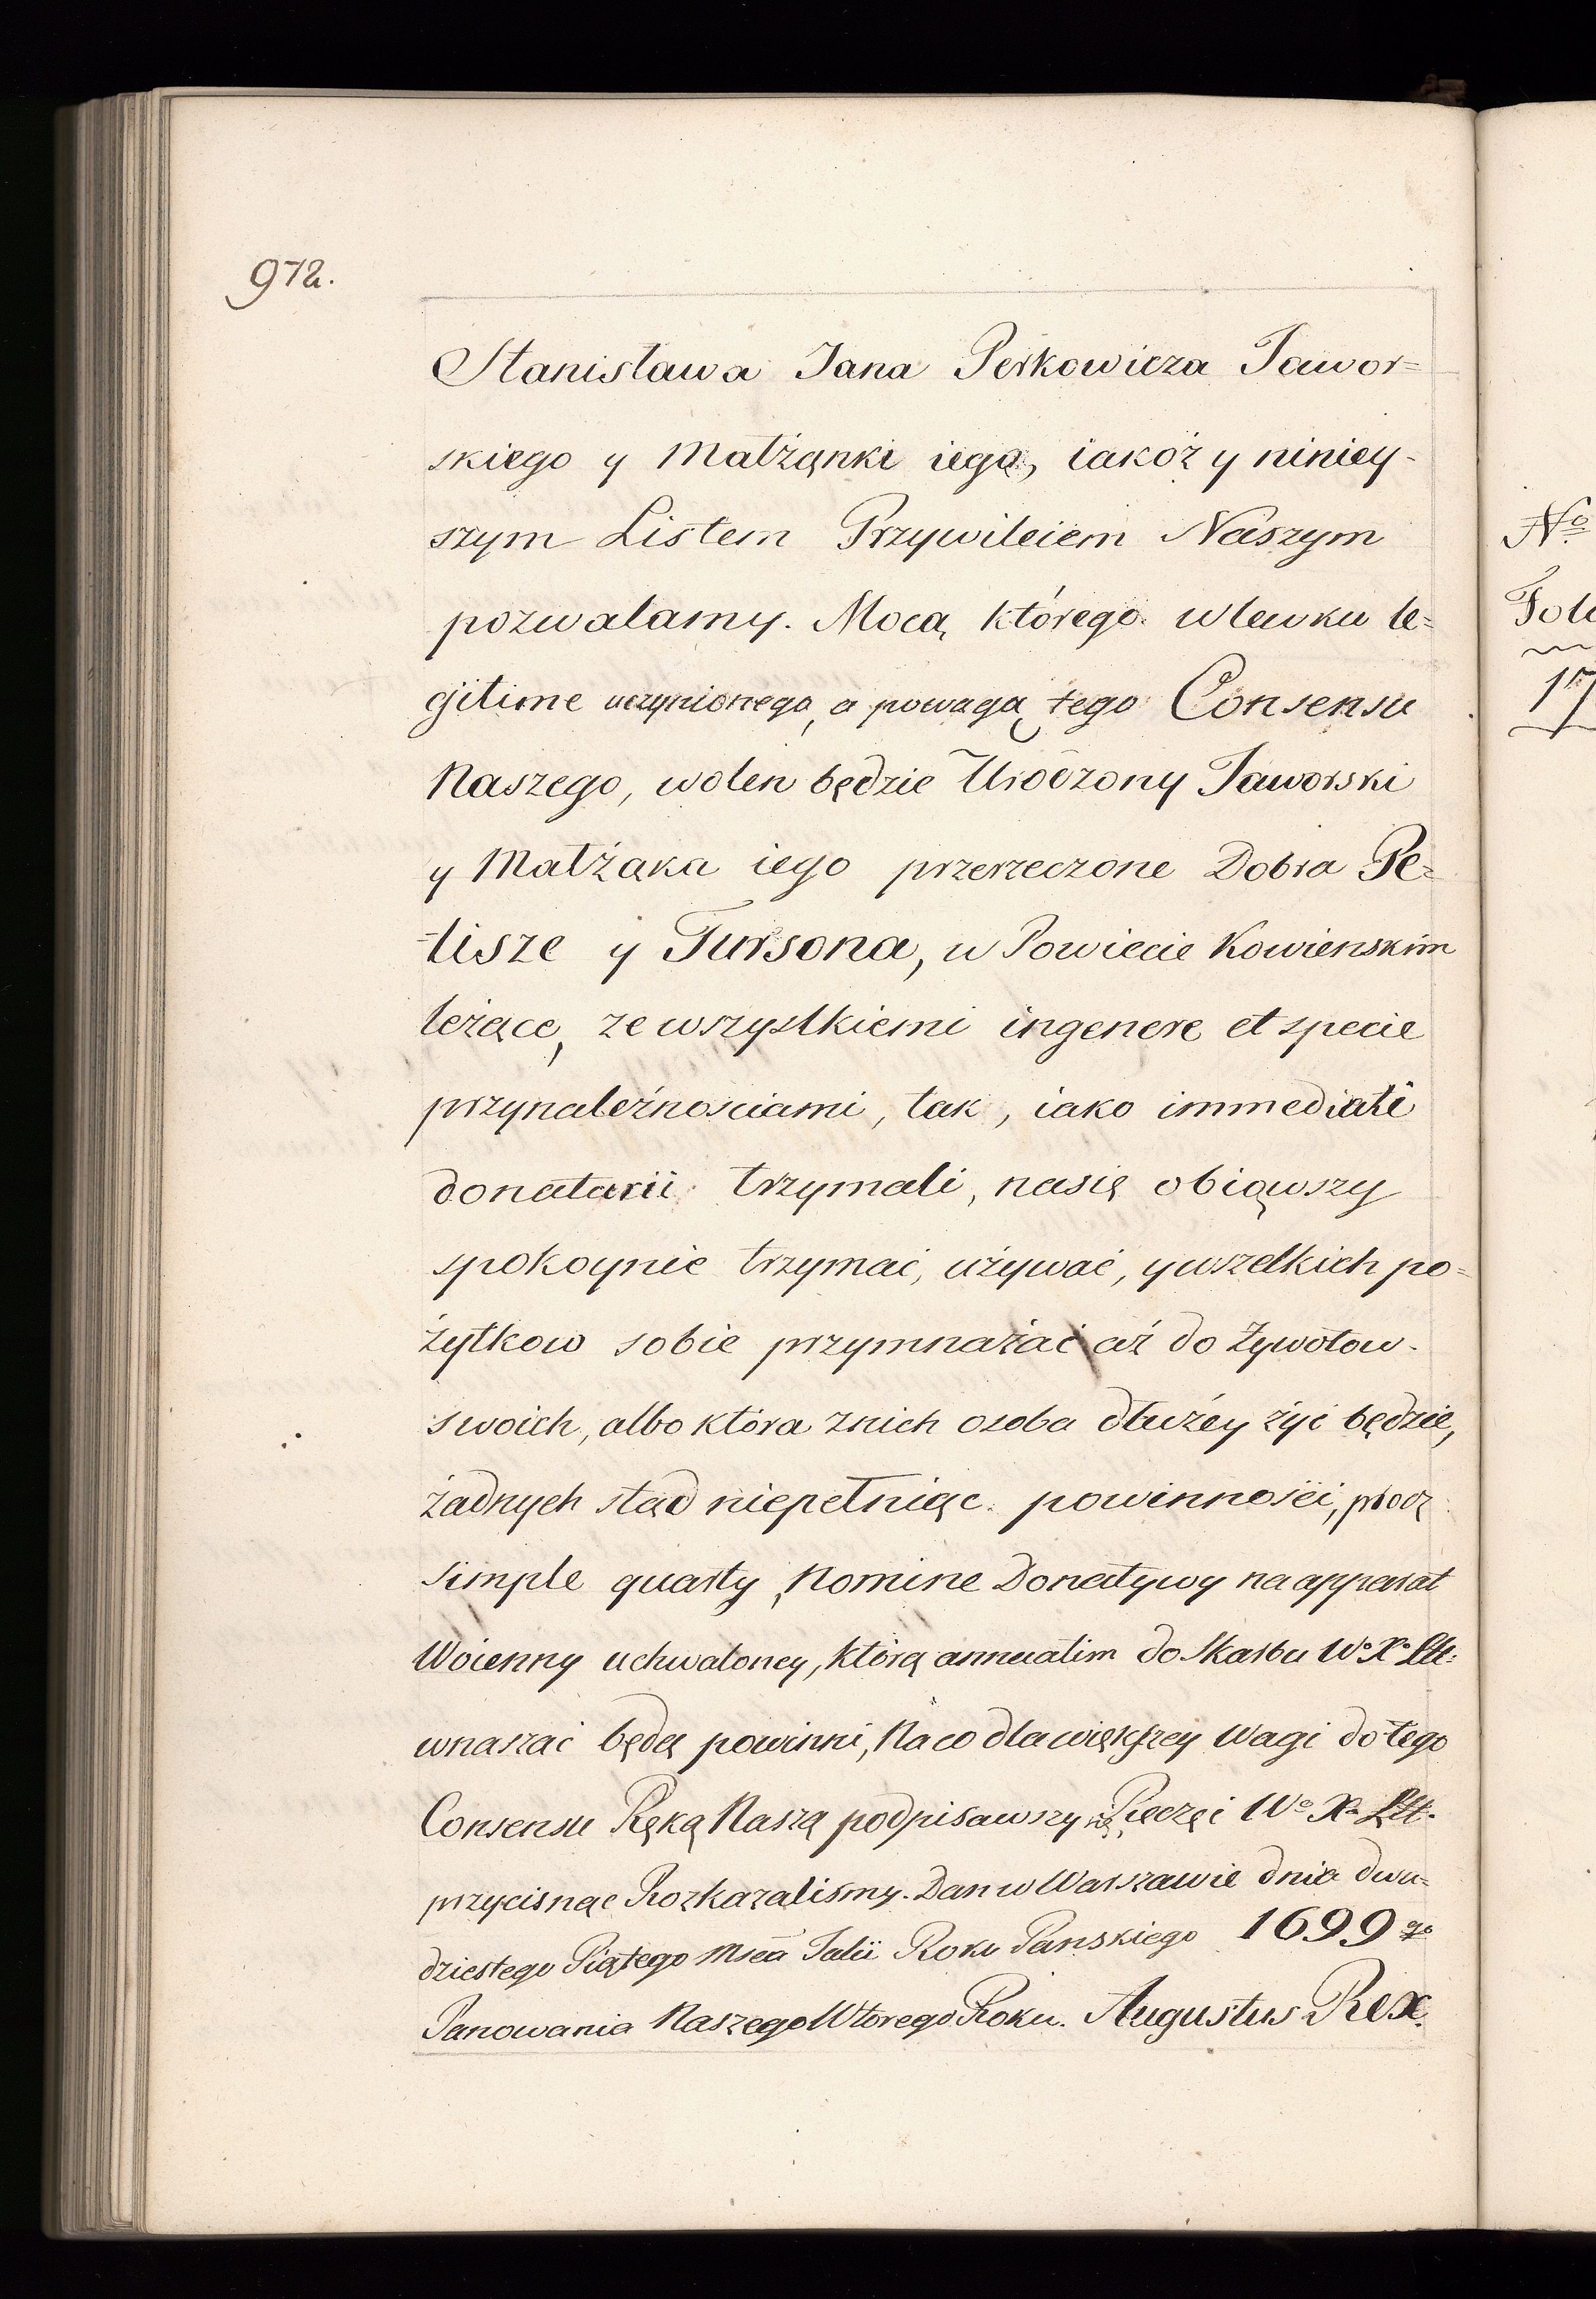 972.
Stanisława Jana Perkowicza Jawor=
skiego y Małżąnki iego, iakoż y niniey-
szym Listem Przywileiem Naszym
pozwalamy. Mocą którego wlewku le=
gitime uczynionego, a powagą tego Consensu
Naszego, wolen będzie Urodzony Jaworski
y Małżąka iego przerzeczone Dobra Pe=
=lisze y Tursona, w Powiecie Kowienskim
leżące, ze wszystkiemi ingenere et specie
przynależnosciami, tak, iako immediati
donatarii trzymali, nasię obiąwszy
spokoynie trzymać, używać, y wszelkich po=
żytkow sobie przymnażać aż do Żywotow
swoich, albo ktora znich osoba dłużéy żyć będzie,
żadnych stąd niepełniąc powinnosći, procz
simple quarty, Nomine Donatywy na apparat
Woienny uchwaloney, którą annuatim do Skarbu Wº Xº Litt:
wnaszać będą powinni, Na co dla większey Wagi do tego
Consensu Ręką Naszą podpisawszy się Pieczęć Wº Xª Litt.
przycisnąć Rozkazalismy. Dan w Warszawie dnia dwu=
dziestego Piątego Msca Julii Roku Panskiego 1699 go
Panowania Naszego Wtorego Roku. Augustus Rex.
Nº
17